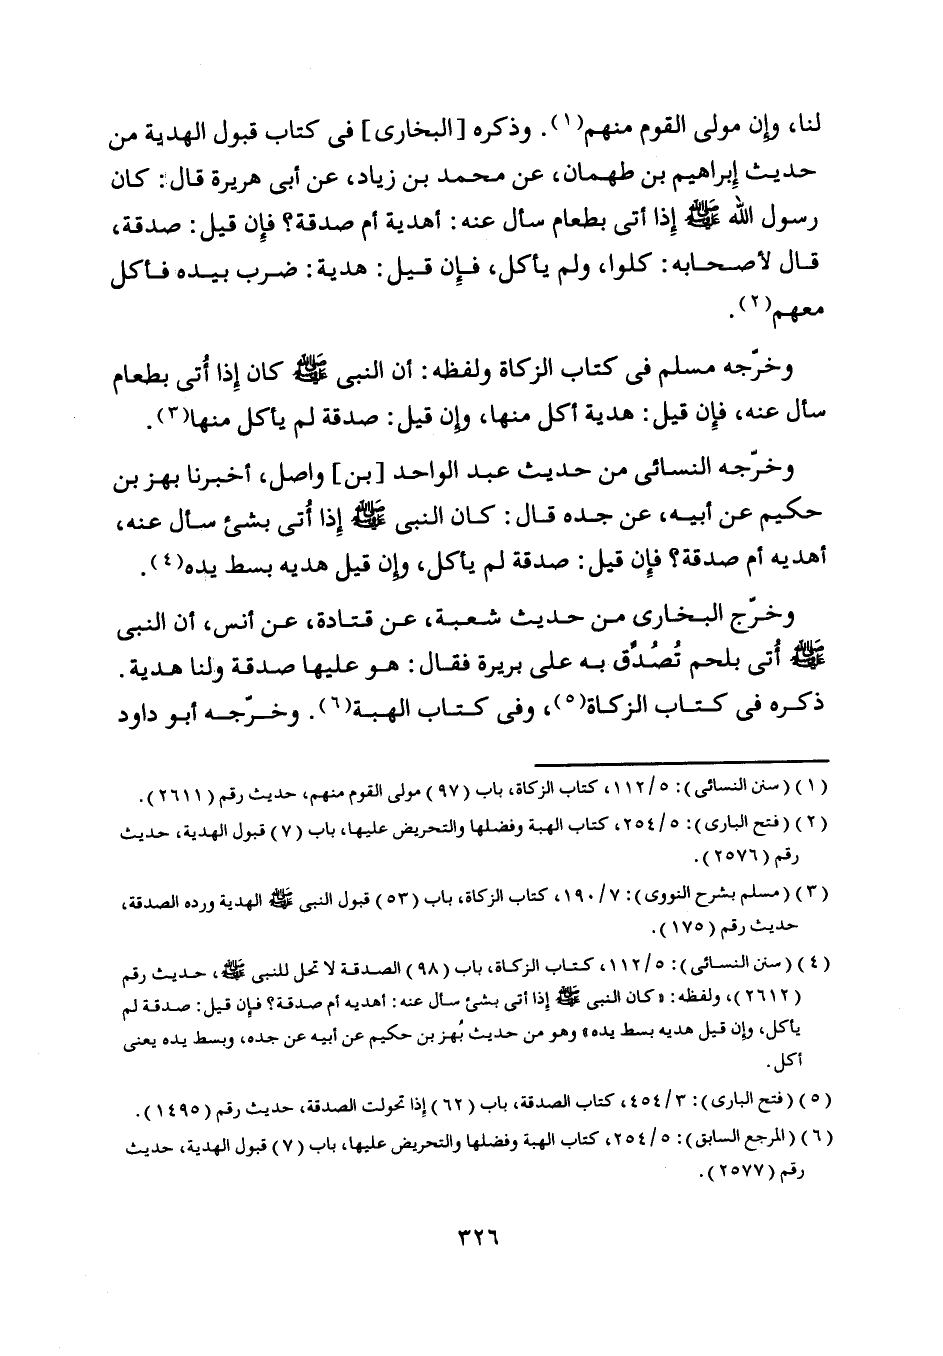 لنا، وإن مولى القوم منهم(١). وذكره [البخارى] فى كتاب قبول الهدية من
حديث إبراهيم بن طهمان، عن محمد بن زياد، عن أبى هريرة قال: كان
رسول الله ﷺ إذا أتى بطعام سأل عنه: أهدية أم صدقة؟ فإن قيل: صدقة،
قال لأصحابه: كلوا، ولم يأكل، فإن قيل: هدية: ضرب بيده فأكل
معهم(٢).
وخرّجه مسلم فى كتاب الزكاة ولفظه: أن النبى ﷺ كان إذا أُتى بطعام
سأل عنه، فإن قيل: هدية أكل منها، وإن قيل: صدقة لم يأكل منها(٣).
وخرّجه النسائى من حديث عبد الواحد [بن] واصل، أخبرنا بهز بن
حكيم عن أبيه، عن جده قال: كان النبى ﷺ إذا أُتى بشئ سأل عنه،
أهديه أم صدقة؟ فإن قيل: صدقة لم يأكل، وإن قيل هديه بسط يده(٤).
وخرّج البخارى من حديث شعبة، عن قتادة، عن أنس، أن النبى
ﷺ أُتى بلحم تُصُدِّق به على بريرة فقال: هو عليها صدقة ولنا هدية.
ذكره فى كتاب الزكاة(٥)، وفى كتاب الهبة(٦). وخرّجه أبو داود
(١) (سنن النسائى): ٥/ ١١٢، كتاب الزكاة، باب (٩٧) مولى القوم منهم، حديث رقم (٢٦١١).
(٢) (فتح البارى): ٥/ ٢٥٤، كتاب الهبة وفضلها والتحريض عليها، باب (٧) قبول الهدية، حديث
رقم (٢٥٧٦).
(٣) (مسلم بشرح النووى): ٧/ ١٩٠، كتاب الزكاة، باب (٥٣) قبول النبى ﷺ الهدية ورده الصدقة،
حديث رقم (١٧٥).
(٤) (سنن النسائى): ٥/ ١١٢، كتاب الزكاة، باب (٩٨) الصدقة لا تحل للنبى ﷺ، حديث رقم
(٢٦١٢)، ولفظه: «كان النبى ﷺ إذا أتى بشئ سأل عنه: أهديه أم صدقة؟ فإن قيل: صدقة لم
يأكل، وإن قيل هديه بسط يده» وهو من حديث بُهز بن حكيم عن أبيه عن جده، وبسط يده يعنى
أكل.
(٥) (فتح البارى): ٣/ ٤٥٤، كتاب الصدقة، باب (٦٢) إذا تحولت الصدقة، حديث رقم (١٤٩٥).
(٦) (المرجع السابق): ٥/ ٢٥٤، كتاب الهبة وفضلها والتحريض عليها، باب (٧) قبول الهدية، حديث
رقم (٢٥٧٧).
٣٢٦